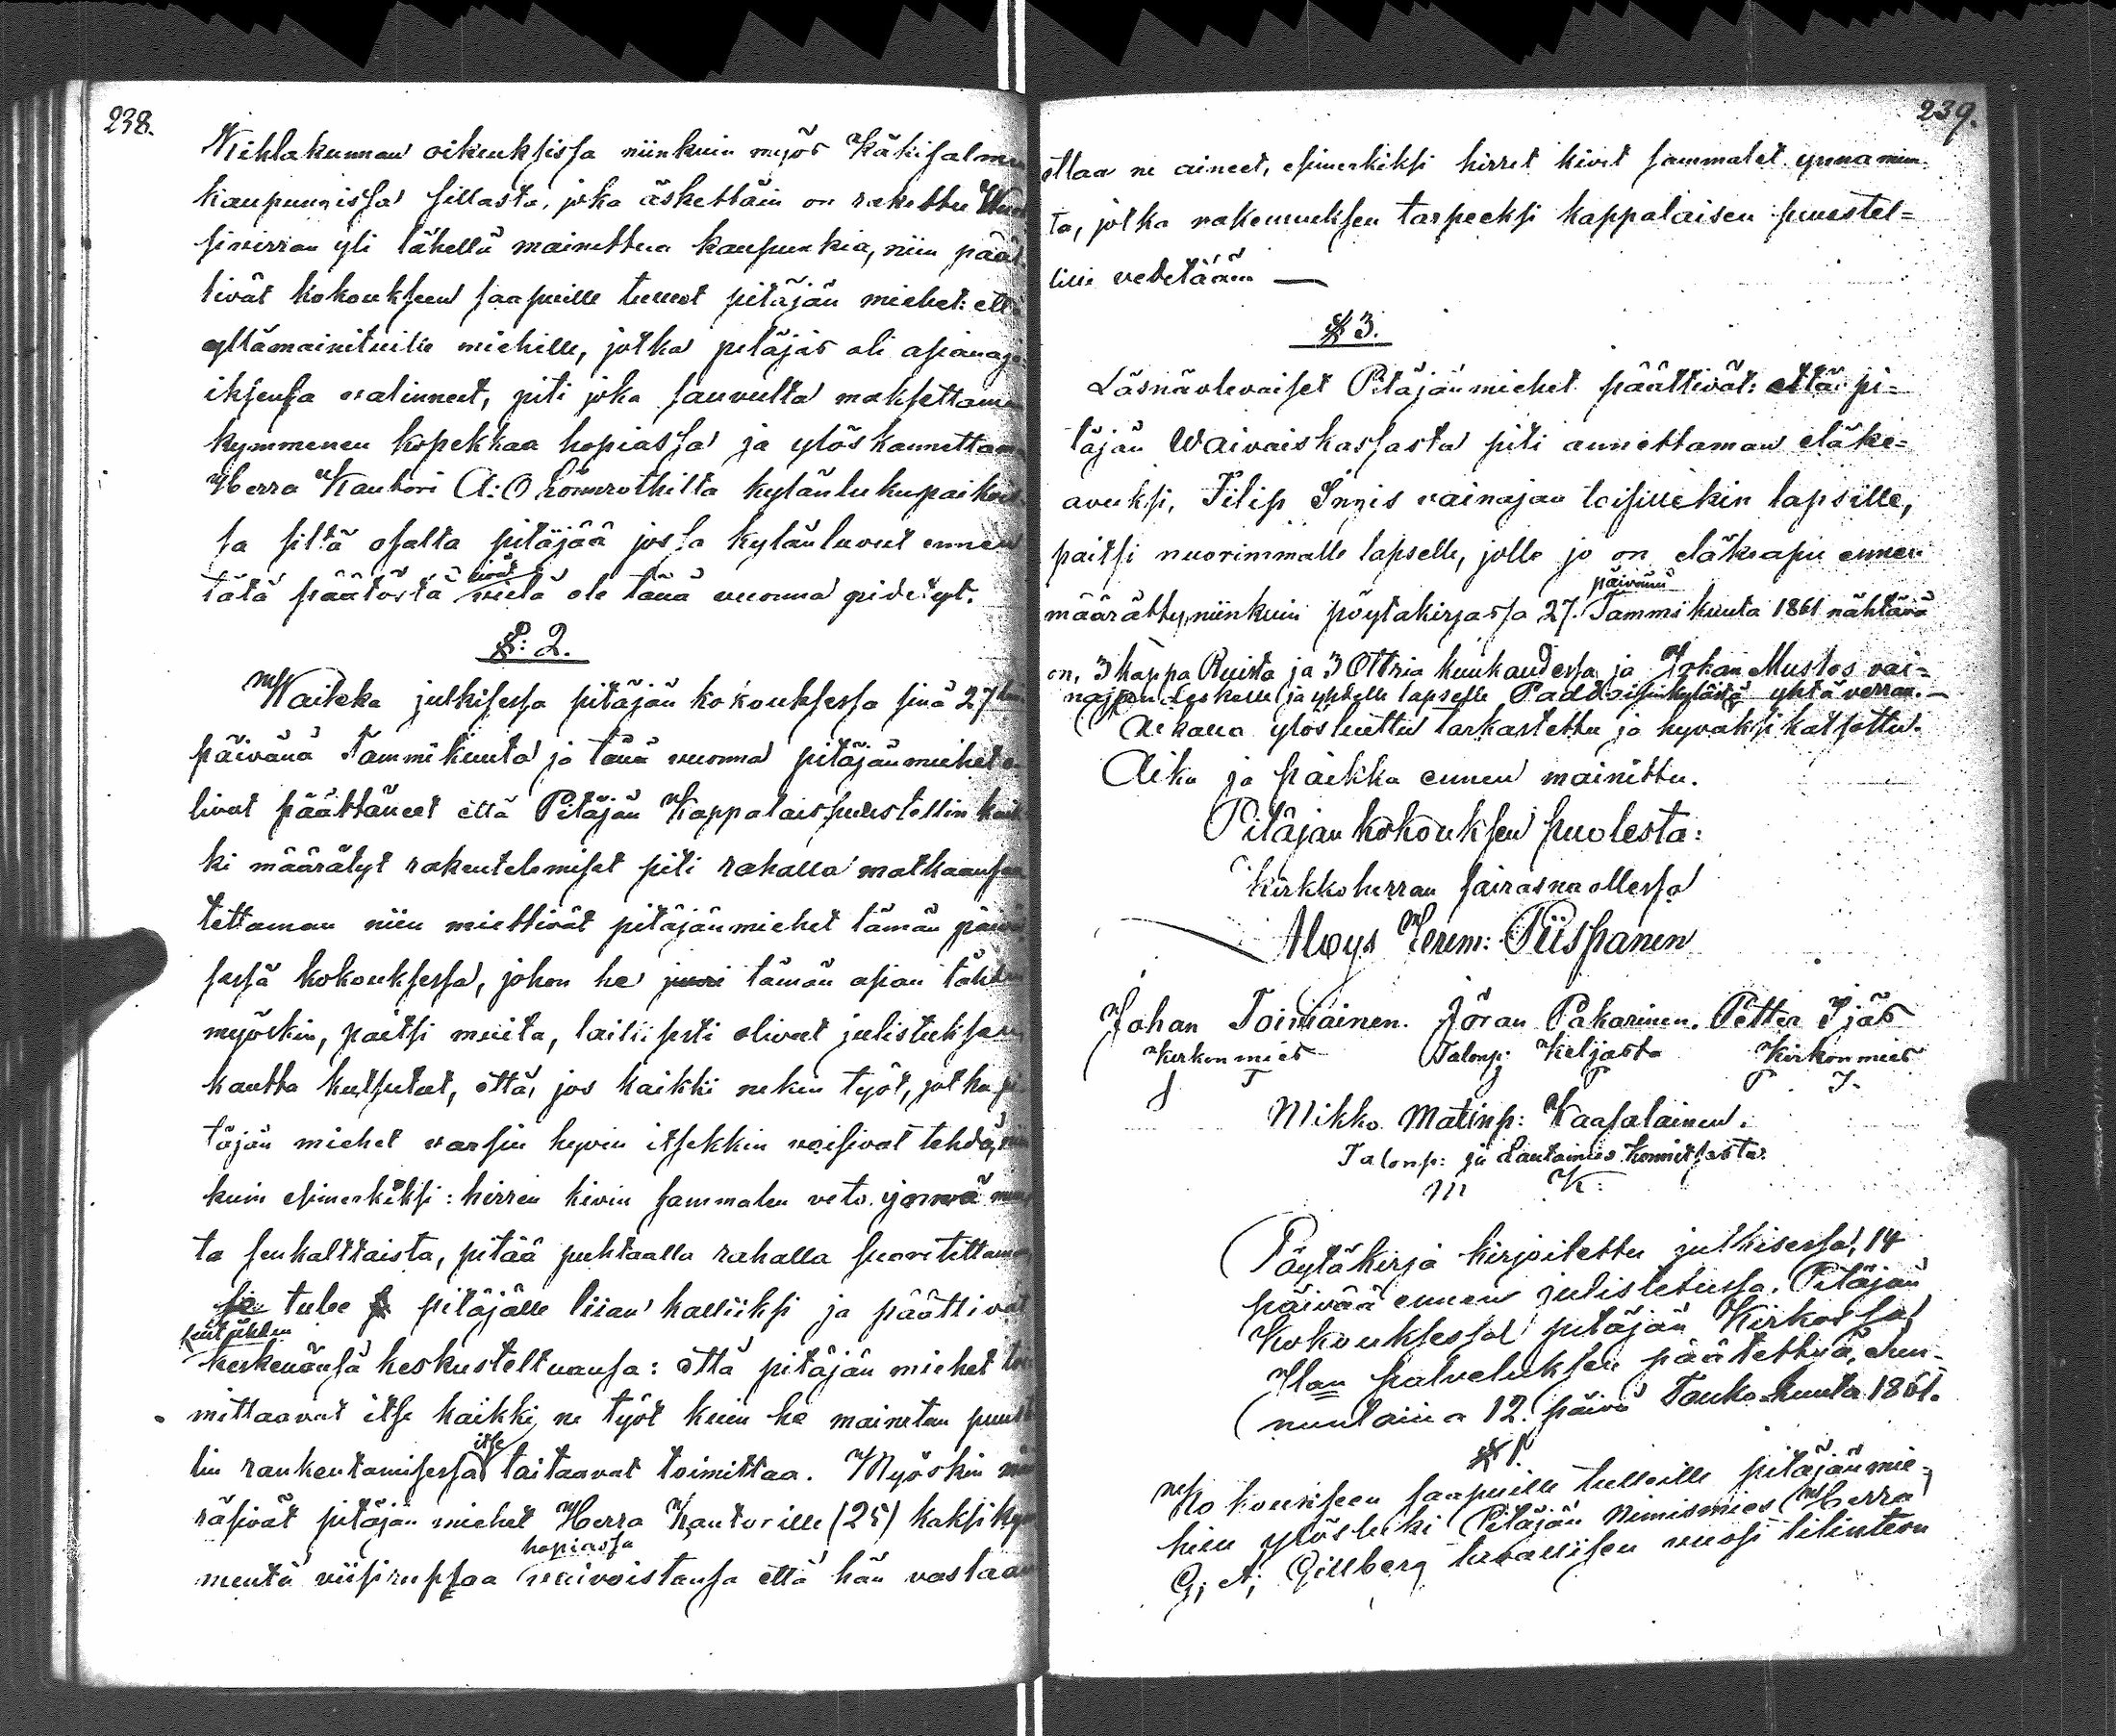 238.
Kihlakunnan oikeuksissa niinkuin myös Käkisalmen
kaupunnissa sillasta, joka äskettäin on rakettu
sivirran yli lähellä mainittua kaupunkia, niin päät-
tivät kokoukseen saapuille tulleet pitäjän miehet: että
yllämainituille miehille, jotka pitäjäs oli asianaja-
iksensa valinneet, piti joka sauvulta maksettaman
kymmenen kopekkaa hopiassa ja ylöskannettaman
Herra Kanttori A: O Lönnrothilta kylänlukupaikois-
sa siltä osalta pitäjää jossa kylänluvut ennen
tätä päätöstä eivät vielä ole tänä vuonna pidetyt.
§: 2.
Waikka julkisessa pitäjän kokouksessa sinä 27
päivänä Tammikuuta ja tänä vuonna pitäjänmiehet o-
livat päättäneet että Pitäjän Kappalaispuustellin kaik-
ki määrätyt rakentelemiset piti rahalla matkaansaa-
tettaman niin miettivät pitäjänmiehet tämän päivä-
sessä kokouksessa, johon he juuri tämän asian tähden
myöskin, paitsi muita, laillisesti olivat julistuksen
kautta kutsutut, että, jos kaikki nekin työt, jotka pi-
täjän miehet varsin hyvin itsekkin voisivat tehdä, niin
kuin esimerkiksi: hirren kivin sammalen veto ynnä muu-
ta senkalttaista, pitää puhtaalla rahalla suoritettaman
se tulee pitäjälle liian kalliiksi ja päättivät
sentähden
keskenänsä keskusteltuansa: että pitäjän miehet toi-
mittaavat itse kaikki ne työt kuin he mainitun puustel-
lin rankentamisessa itse taitaavat toimittaa. Myöskin mää-
räsivät pitäjän miehet Herra Kanttorille (25) kaksikym-
mentä viisi ruplaa hopiassa vaivoistansa että hän vastaan
239.
ottaa ne aineet, esimerkiksi hirret kivet sammalet ynnä mui-
ta, jotka rakennuksen tarpeeksi kappalaisen puustel-
liin vedetään —
§ 3.
Läsnäolevaiset Pitäjänmiehet päättivät: että pi-
täjän Waivaiskassasta piti annettaman eläke-
avuksi, Filip Innis vainajan toisillekin lapsille,
paitsi nuorimmalle lapselle, jolle jo on eläkeapu ennen
määrätty, niinkuin pöytäkirjassa 27. päivänä Tammikuuta 1861 nähtävä
on, 3 kappa Ruista ja 3 Ottria kuukaudessa, ja Johan Mustos vai-
najan Leskelle ja yhdelle lapselle yhtä verran. —
ylösluettu tarkastettu ja hyväksi katsottu.
Aika ja paikka ennen mainittu.
Pitäjän kokouksen puolesta:
Kirkkoherran sairasna ollessa
Aloys Jerem: Piispanen
Johan Toiviainen. Jöran Pakarinen. Petter Ijäs
Kirkonmies Talonp: Keljasta Kirkonmies
J T J P P. I.
Mikko Matinp: Kaasalainen.
Talonp: ja Lautamies Konnitsasta.
M K:
Pöytäkirja kirjoitettu julkisessa, 14
päivää ennen julistetussa, Pitäjän
Kokouksessa pitäjän Kirkossa,
Jlan palveluksen päätettyä, Sun-
nuntaina 12. päivä Toukokuuta 1861.
§ 1.
Kokoukseen saapuille tulleille pitäjänmie-
hien ylösluki Pitäjän Nimismies Herra
G; A; Gillberg tavallisen vuosi tilinteon